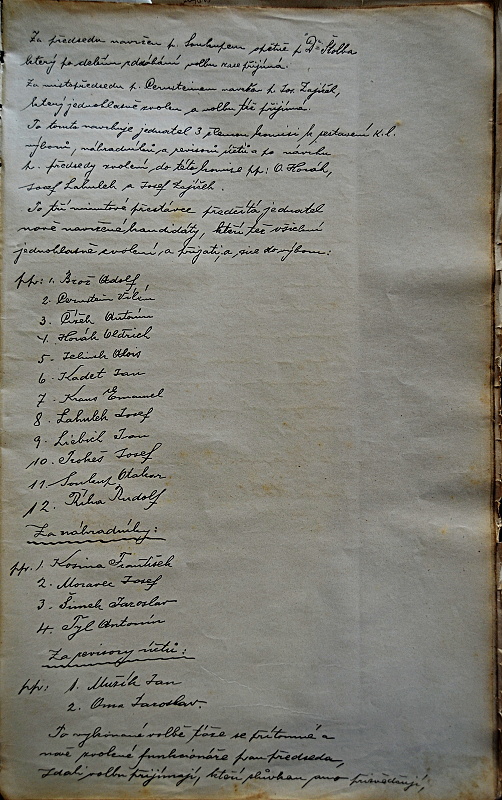 Za předsedu navržen p. Soukupem opětně p. Dr. Štolba
který po delším zdráhání volbu zase přijímá.
Za místopředsedu p. Pernsteinem navržen p. Jos. Zajíček,
který jednohlasně zvolen a volbu též přijímá.
Po tomto navrhuje jednatel 3 člennou komisi k sestavení k.l.
výboru, náhradníků a revisorů účtů a po návrhu
p. předsedy zvoleni do této komise pp: O. Horák,
Josef Lahulek a Josef Zajíček.
Po tří minutové přestávce předčítá jednatel
nově navržené kandidáty, kteří též všichni
jednohlasně zvoleni, a přijati, a sice do výboru:
pp: 1. Brož Adolf
2. Pernstein Vilém
3. Písek Antonín
4. Horák Oldřich
5. Jelinek Alois
6. Kadet Jan
7. Kraus Emanuel
8. Lahulek Josef
9. Liebich Ivan
10. Trokeš Josef
11. Soukup Otakar
12. Říha Rudolf
Za náhradníky:
pp. 1. Kosina František
2. Moravec Josef
3. Šimek Jaroslav
4. Tyl Antonín
Za revisory účtů:
pp: 1. Mužík Jan
2. Oma Jaroslav.
Po vykonané volbě táže se přítomné a
nově zvolené funkcionáře pan předseda,
zdali volbu přijímají, kteří slůvkem ano přisvědčují,